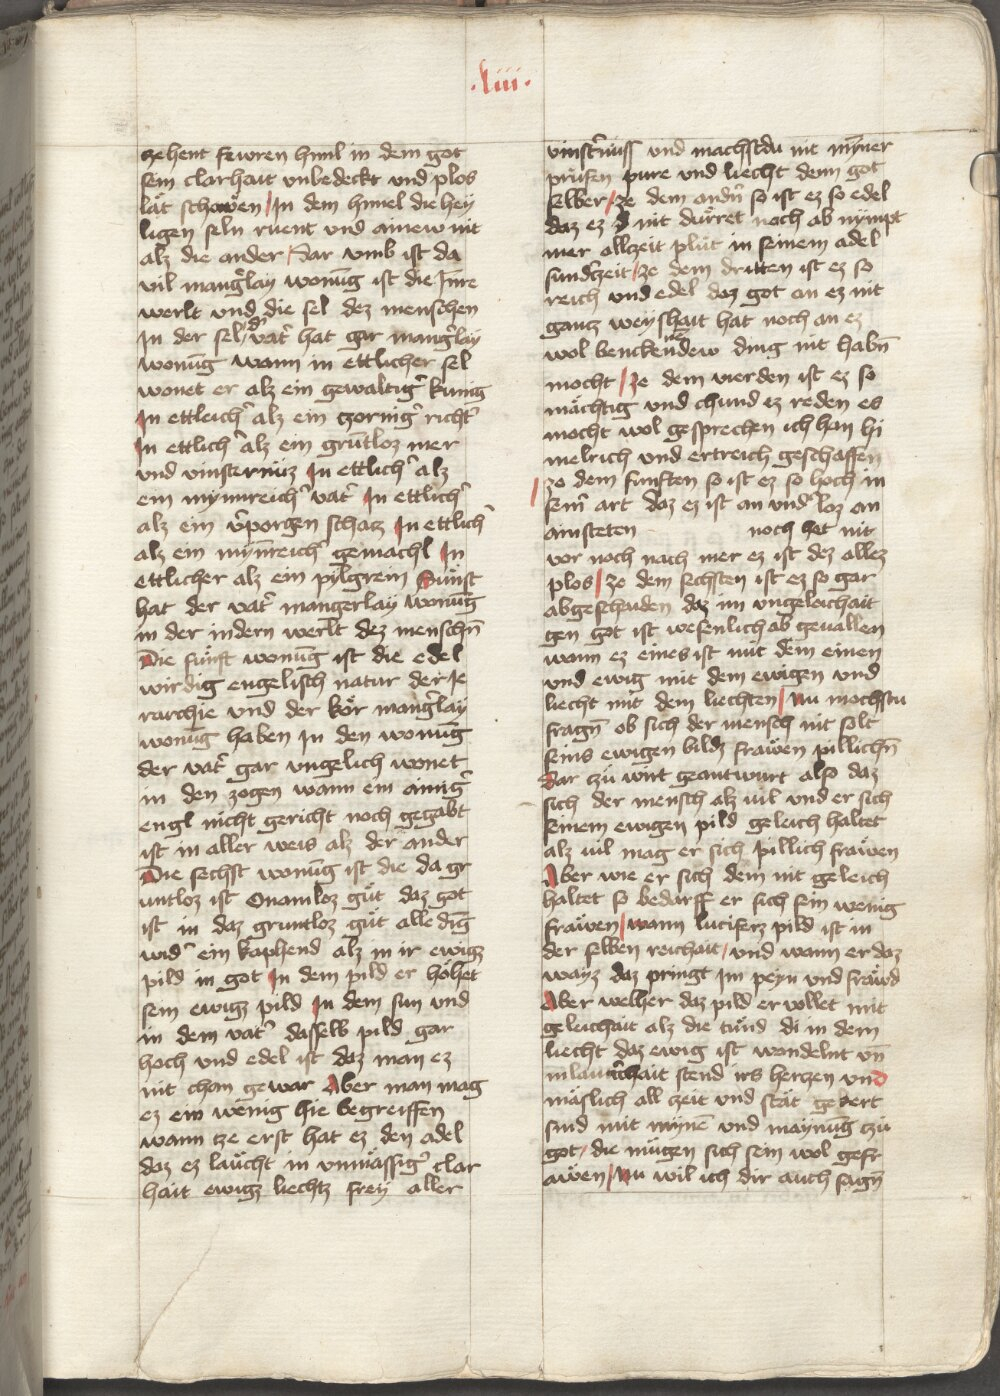 .liii.
zehent fewren himl in dem got
sein clarhait unbedeckt und plos
lät schowen / In dem himel die hey
ligen seln ruent und ainew nit
alz die ander / Dar vmb ist da
vil mangˀlay wonūg ist die Jnre
werlt und die sel dez menschen
In der sel / dˀ vatˀ hat gar mangˀlay
wonūg wann in ettlicher sel
wonet er alz ein gewaltigˀ kunig
In ettleichˀ alz ein tzornigˀ richtˀ
In ettlichˀ alz ein grūtloz mer
vnd vinsternüz In ettlichˀ alz
ein mynnreichˀ vatˀ In ettlichˀ
alz ein vˀporgen schatz In ettlichˀ
alz ein mynreichˀ gemachl In
ettlicher alz ein pilgrem Sünst
hat der vatˀ mangerlay wonūg
in der indern werlt dez menschn̄
Die fünft wonūg ist die edel
wirdig engelisch natur der Je
rarchie vnd der kör mangˀlay
wonūg haben In den wonūg
der vatˀ gar vngelich wonet
in den zogen wann ein ainigˀ
engl nicht gericht noch gegabt
ist in aller weis alz der ander
Die sechst wonūg ist die da gr
untloz ist Onamloz güt daz got
ist in daz gruntloz güt alle dīg
widˀ ein kaphend alz in ir ewigz
pild in got In dem pild er höhet
sein ewigz pild In dem sun und
in dem vatˀ dasselb pild gar
hoch und edel ist daz man ez
nit chan gewar Aber man mag
ez ein wenig hie begreiffen
wann tze erst hat ez den adel
daz ez läucht in vnmässigˀ clar
hait ewigz liechtz frey aller
vinstˀnüss und machstdu nit mȳner
prüfen pure vnd liecht denn got
selber / ze dem andn̄ so ist ez so edel
daz ez nit dürret noch ab nympt
mer allzeit plüt in seinem adel
sundˀzeit / ze dem dritten ist ez so
reich vnd edel daz got an ez nit
gantz weyshait hat noch an ez
wol benckendew ding nit habn̄
mocht / ze dem vierden ist ez so
mächtig vnd chund ez reden es
mocht wol gesprechen ich han hi
melrich und ertreich geschaffen
ze dem funften so ist ez so hoch in
seinˀ art daz ez ist an vndˀloz an
ainsteten noch het nit
vor noch nach mer ez ist dez allez
plos / ze dem sechsten ist ez so gar
abgescheiden daz im vngeleichait
gen got ist wesenlich ab gevallen
wann ez eines ist mit dem einen
vnd ewig mit dem ewigen vnd
liecht mit dem liechten / Nu mochstu
fragn̄ ob sich der mensch nit solt
seins ewigen bildz fräwen pillichn̄
Dar zü wirt geantwurt also daz
sich der mensch alz vil vnd er sich
seinem ewigen pild geleich haltet
alz vil mag er sich pillich fräwen
Aber wie er sich dem nit geleich
haltet so bedarff er sich sein wenig
fräwen / wann lucifers pild ist in
der selben reichait / vnd wann er daz
wayz daz pringt im peyn vnd fräwd
Aber welher daz pild er vollet mit
geleichait alz die tünd di in dem
liecht daz ewig ist wandelnt vn̄
in stend irs hertzen vnd
mäslich all zeit vnd stät gekert
sind mit mynē vnd maynūg tzü
got / die mügen sich sein wol gefr
äwen / Nu wil ich dir auch sagn̄